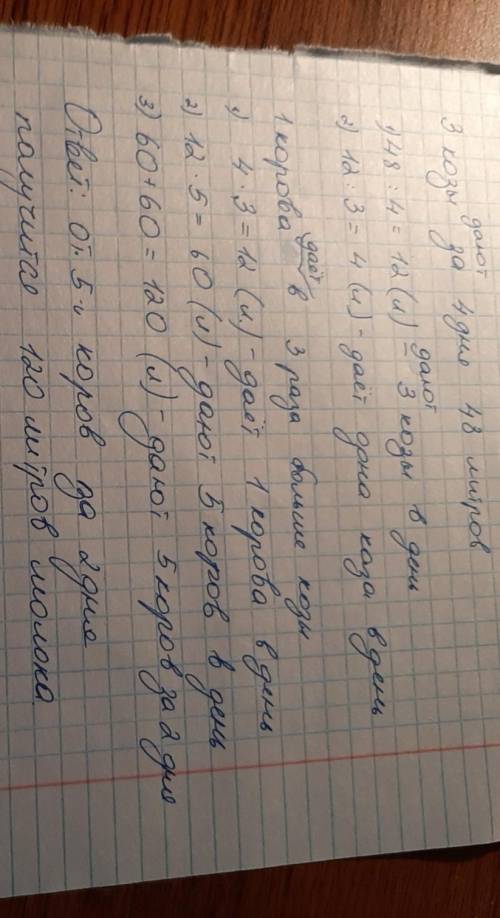 3 козы дают за 4 дня 48 литров
1) 48 : 4 = 12 (л) – дают 3 козы в день
2) 12 : 3 = 4 (л) – даёт одна коза в день
1 корова даёт в 3 раза больше козы
1) 4 · 3 = 12 (л.) – даёт 1 корова в день
2) 12 · 5 = 60 (л) – дают 5 коров в день
3) 60 + 60 = 120 (л) – дают 5 коров за 2 дня
Ответ: от 5-и коров за 2 дня
получится 120 литров молока